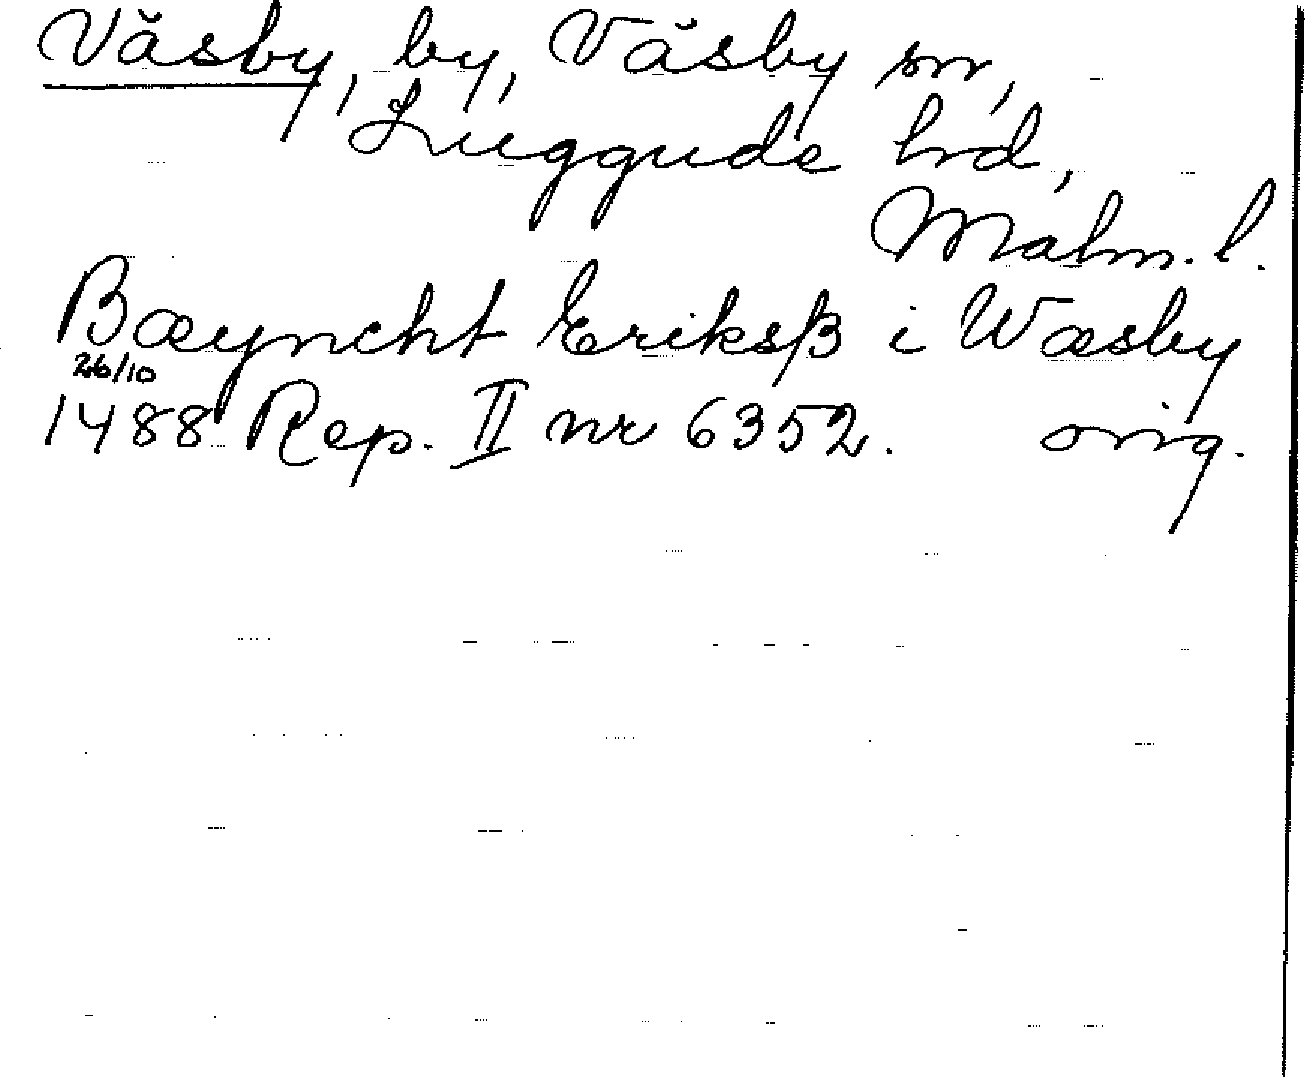 Väsby, by, Väsby sn,
Luggude hd,
Malm. l.
Bæyncht Eriksß i Wæsby
26/10
1488 Rep. II nr 6352. orig.